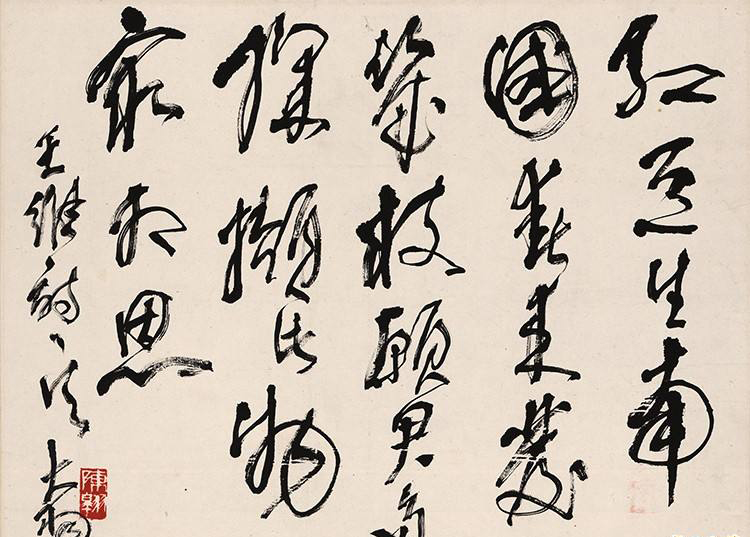 紅豆生南
國春来發
幾枝願君多
採擷此物
最相思
王維詩 大羽
陳翱